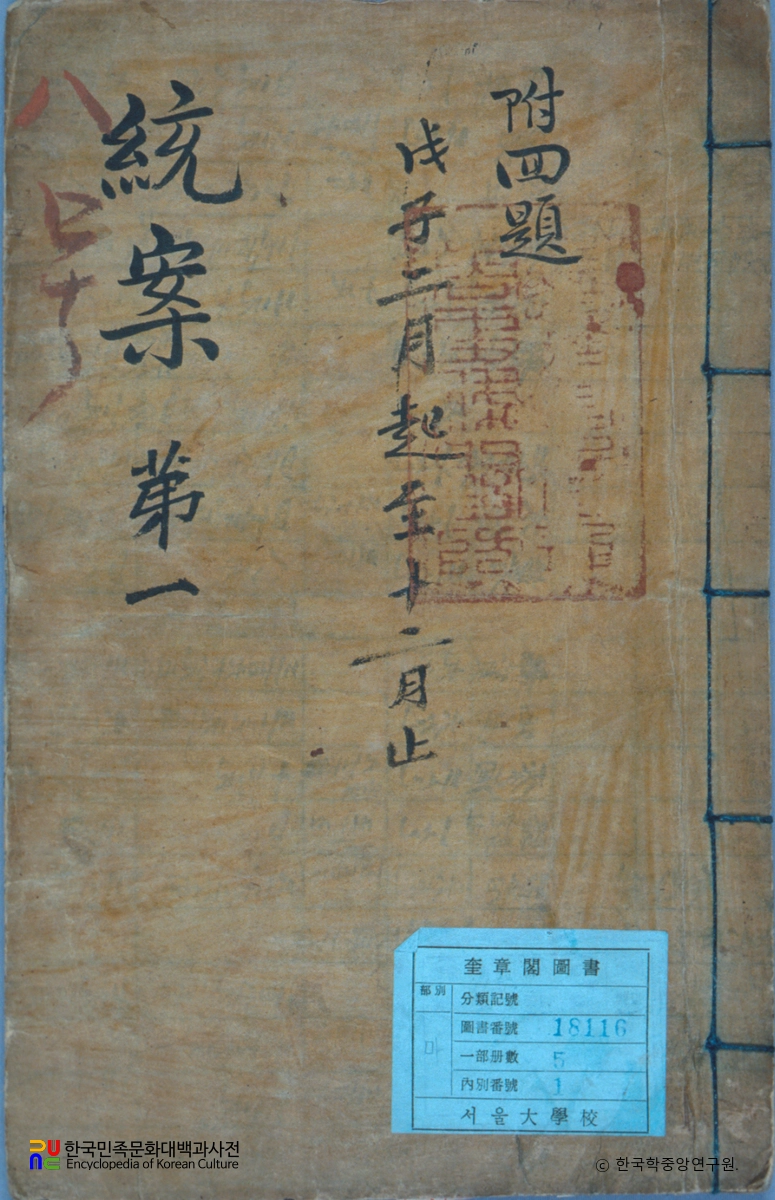 附四題
戊子二月起至十二月止
統案 第一
奎章閣圖書
部別
마
分類記號
圖書番號 18116
一部册數 5
內別番號 1
서울大學校
한국민족문화대백과사전
Encyclopedia of Korean Culture
© 한국학중앙연구원.